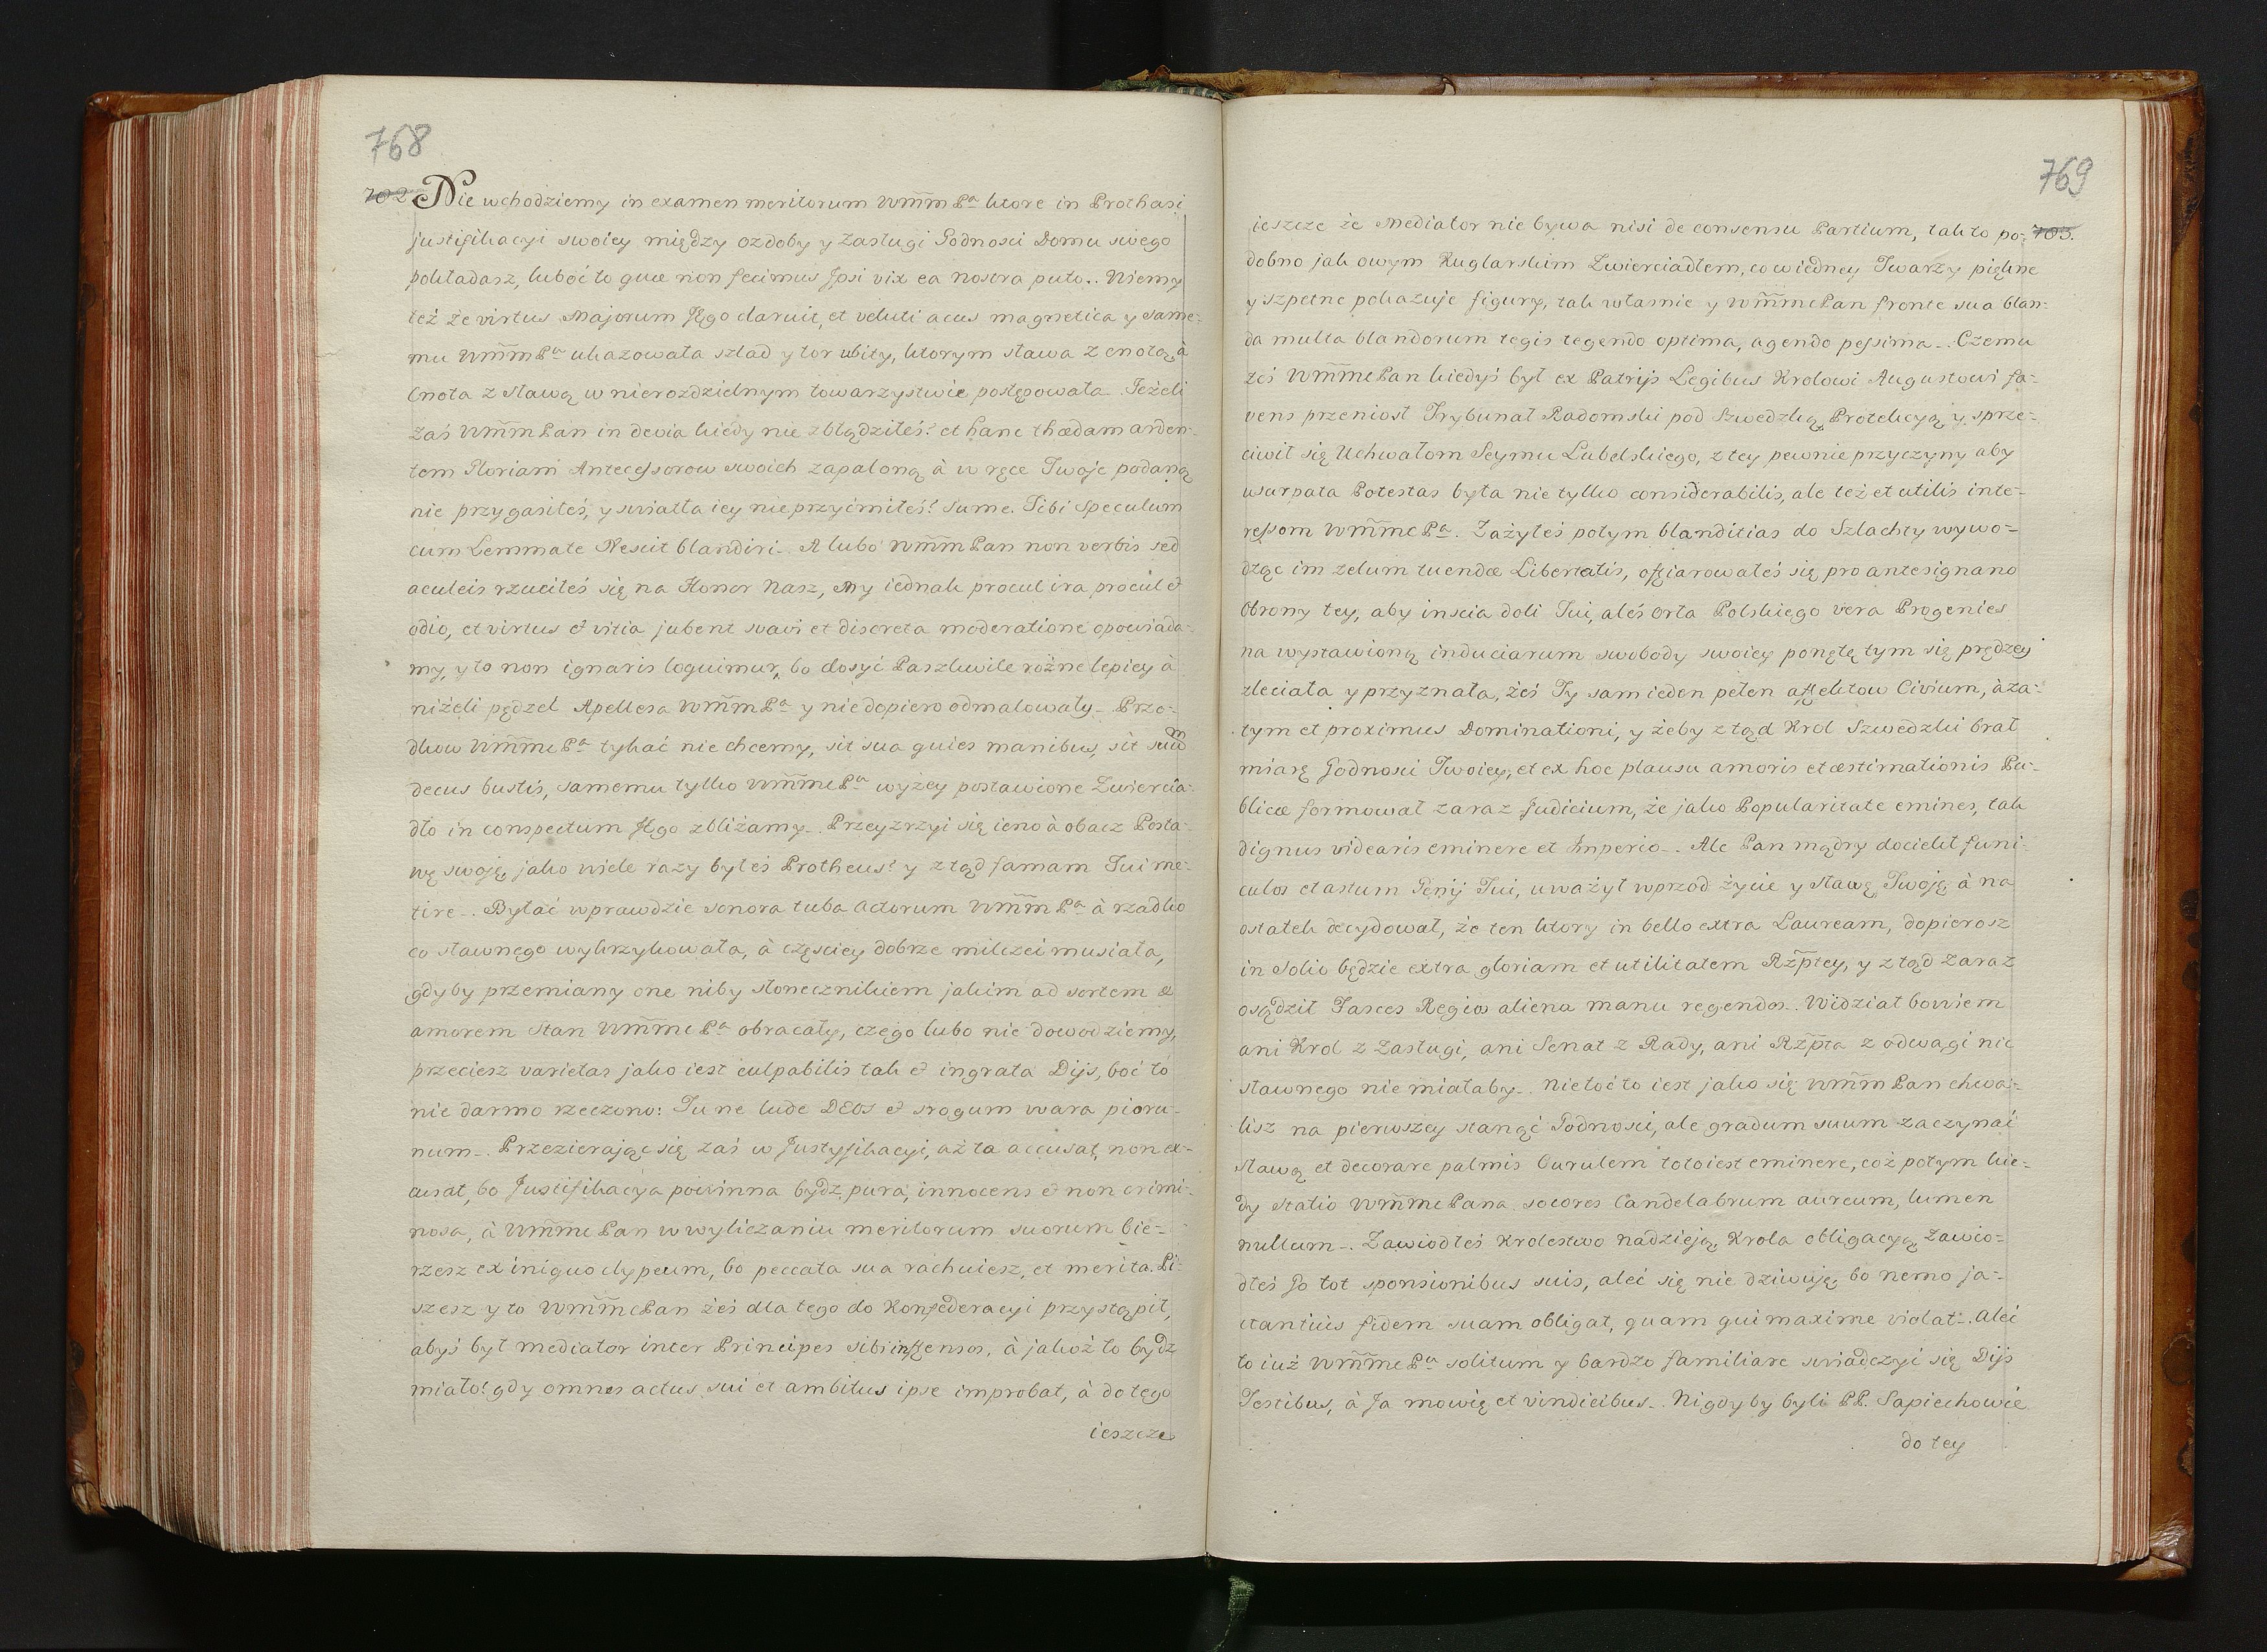 768
702 Nie wchodziemy in examen meritorum Wm̃m Pa ktore in Prothasi
justifikacyi swoiey między ozdoby y zasługi Godności Domu swego
pokładasz, luboć to quæ non fecimus Ipsi vix ea nostra puto.. Niemy
też że virtus Majorum Jęgo claruit, et veluti acus magnetica y same-
mu Wm̃m Pa ukazowała szlad y tor ubity, ktorym sława z cnotą, à
Cnota z sławą w nierozdzielnym towarzystwie postępowała. Jeżeli
zaś Wm̃m Pan in devia kiedy nie zbłądziłeś? et hanc thædam arden-
tem Gloriam Antecessorow swoich zapaloną à w ręce Twoje podaną
nie przygasiłeś, y swiatła iey nie przyćmiłeś? Sume Tibi Speculum
cum Lemmate Nescit blandiri. A lubo Wm̃m Pan non verbis sed
aculeis rzuciłeś się na Honor Nasz, my iednak procul ira procul et
odio, et virtus et vitia jubent suavi et discreta moderatione opowiada-
my, y to non ignaris loquimur, bo dosyć Paszkwile rożne lepiey à
niżeli pędzel Apellesa Wm̃m Pa y nie dopiero odmalowały. Prze-
dkow Wm̃mc Pa tykać nie chcemy, sit sua quies manibus, sit suum
decus bustis, samemu tylko Wm̃mc Pa wyżey postawione Zwiercia-
dło in conspectum Jego zbliżamy. Przeyzrzyi się ieno à obacz Posta-
wę swoję, jako wiele razy byłeś Protheus? y ztąd famam Tui me-
tire. Byłać wprawdzie sonora tuba Actorum Wm̃m Pa à rzadko
co sławnego wykrzykowała, à częściey dobrze milczeć musiała,
gdyby przemiany one niby słonecznikiem jakim ad sortem et
amorem stan Wm̃mc Pa obracały, czego lubo nie dowodziemy,
przeciesz varietas jako iest culpabilis tak et ingrata Dijs, boć to
nie darmo rzeczono: Tu ne lude DEOS et srogum wara pioru-
num. Przezierając się zaś w Justyfikacyi, aż ta accusat, non ex-
cusat, bo Justifikacya powinna bydź pura, innocens et non crimi-
nosa, à Wm̃mc Pan w wyliczaniu meritorum suorum bie-
rzesz ex iniquo clypeum, bo peccata sua rachuiesz, et merita. Pi-
szesz y to Wm̃mc Pan żeś dla tego do Konfederacyi przystąpił,
abyś był mediator inter Principes sibi infensos, à jakoż to bydź
miało? gdy omnes actus sui et ambitus ipse improbat, à do tego
ieszcze
769
ieszcze że Mediator nie bywa nisi de consensu Partium, tak to po- 703.
dobno jak owym Kuglarskim Zwierciadłem, co w iedney Twarzy piękne
y szpetne pokazuje figury, tak własnie y Wm̃mc Pan fronte sua blan-
da multa blandorum tegis tegendo optima, agendo pessima. Czemu
żeś Wm̃mc Pan kiedyś był ex Patrijs Legibus Krolowi Augustowi fa-
vens przeniosł Trybunał Radomski pod Szwedzką Protekcyą y sprze-
ciwił się Uchwałom Seymu Lubelskiego, z tey pewnie przyczyny aby
usurpata Potestas była nie tylko considerabilis, ale też et utilis inte-
ressom Wm̃mc Pa. Zażyłeś potym blanditias do Szlachty wywo-
dząc im zelum tuendæ Libertatis, offiarowałeś się pro antesignano
Obrony tey, aby inscia doli Tui, aleś Orła Polskiego vera Progenies
na wystawioną induciarum swobody swoiey ponętę tym się prędzey
zleciała y przyznała, żeś Ty sam ieden pełen affektow Civium, à za-
tym et proximus Dominationi, y żeby ztąd Krol Szwedzki brał
miarę Godności Twoiey, et ex hoc plausu amoris et æstimationis Pu-
blicæ formował zaraz Judicium, że jako Popularitate emines, tak
dignus videaris eminere et Imperio. Ale Pan mądry dociekł funi-
culos et astum Genij Tui, uważył wprzod życie y sławę Twoję à na
ostatek decydował, że ten ktory in bello extra Lauream, dopierosz
in Solio będzie extra gloriam et utilitatem Rzp̃tey, y ztąd zaraz
osądził Fasces Regios aliena manu regendos. Widział bowiem
ani Krol z Zasługi, ani Senat z Rady, ani Rzp̃ta z odwagi nic
sławnego nie miałaby. Nie toć to iest jako się Wm̃m Pan chwa-
lisz na pierwszey stanąć Godności, ale gradum suum zaczynać
sławą et decorare palmis Curulem toto iest eminere, coż potym kie-
dy statio Wm̃mc Pana socores Candelabrum aureum, lumen
nullum. Zawiodłeś Krolestwo nadzieją, Krola obligacyą zawio-
dłeś Jo tot sponsionibus suis, aleć się nie dziwuję, bo nemo ja-
ctantius fidem suam obligat, quam qui maxime violat. Aleć
to iuż Wm̃mc Pa solitum y bardzo familiare swiadczyć się Dijs
Testibus, à Ja mowię et vindicibus. Nigdy by byli PP. Sapiechowie
do tey